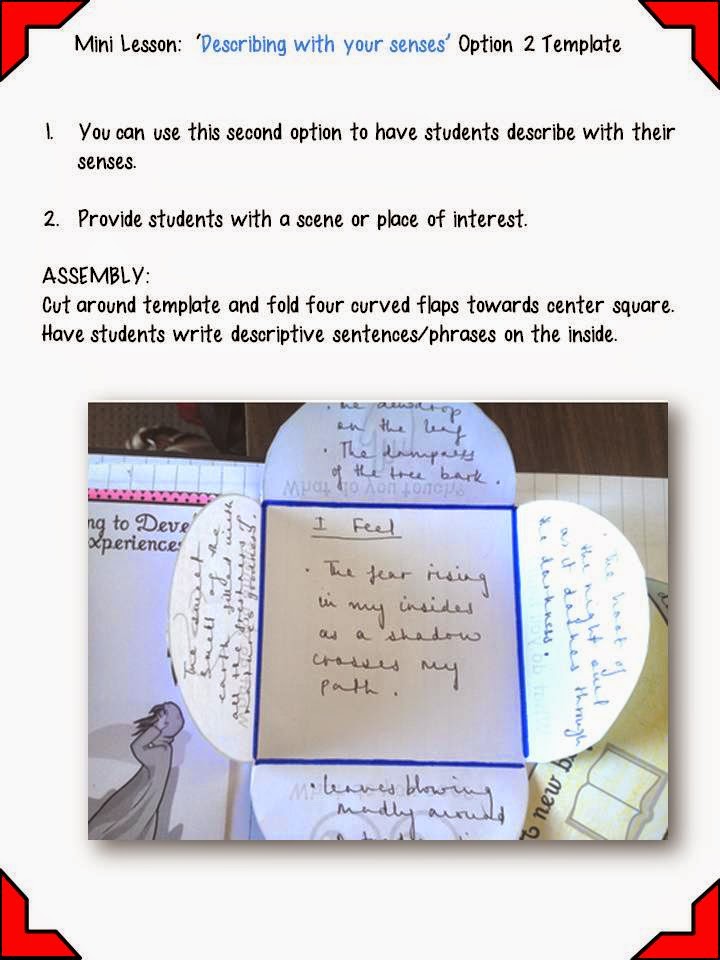 Mini Lesson: ‘Describing with your senses’ Option 2 Template
1. You can use this second option to have students describe with their
senses.
2. Provide students with a scene or place of interest.
ASSEMBLY:
Cut around template and fold four curved flaps towards center square.
Have students write descriptive sentences/phrases on the inside.
dewdrop
on the leaf
• The dampness
of the tree bark.
What do you touch?
ng to Deve
xperience
The sweet
smell of the
earth filled with
all the
I Feel
• The fear rising
in my insides
as a shadow
crosses my
path.
• The hoot of
the night owl
as it dashes through
the darkness.
• leaves blowing
madly around
new b